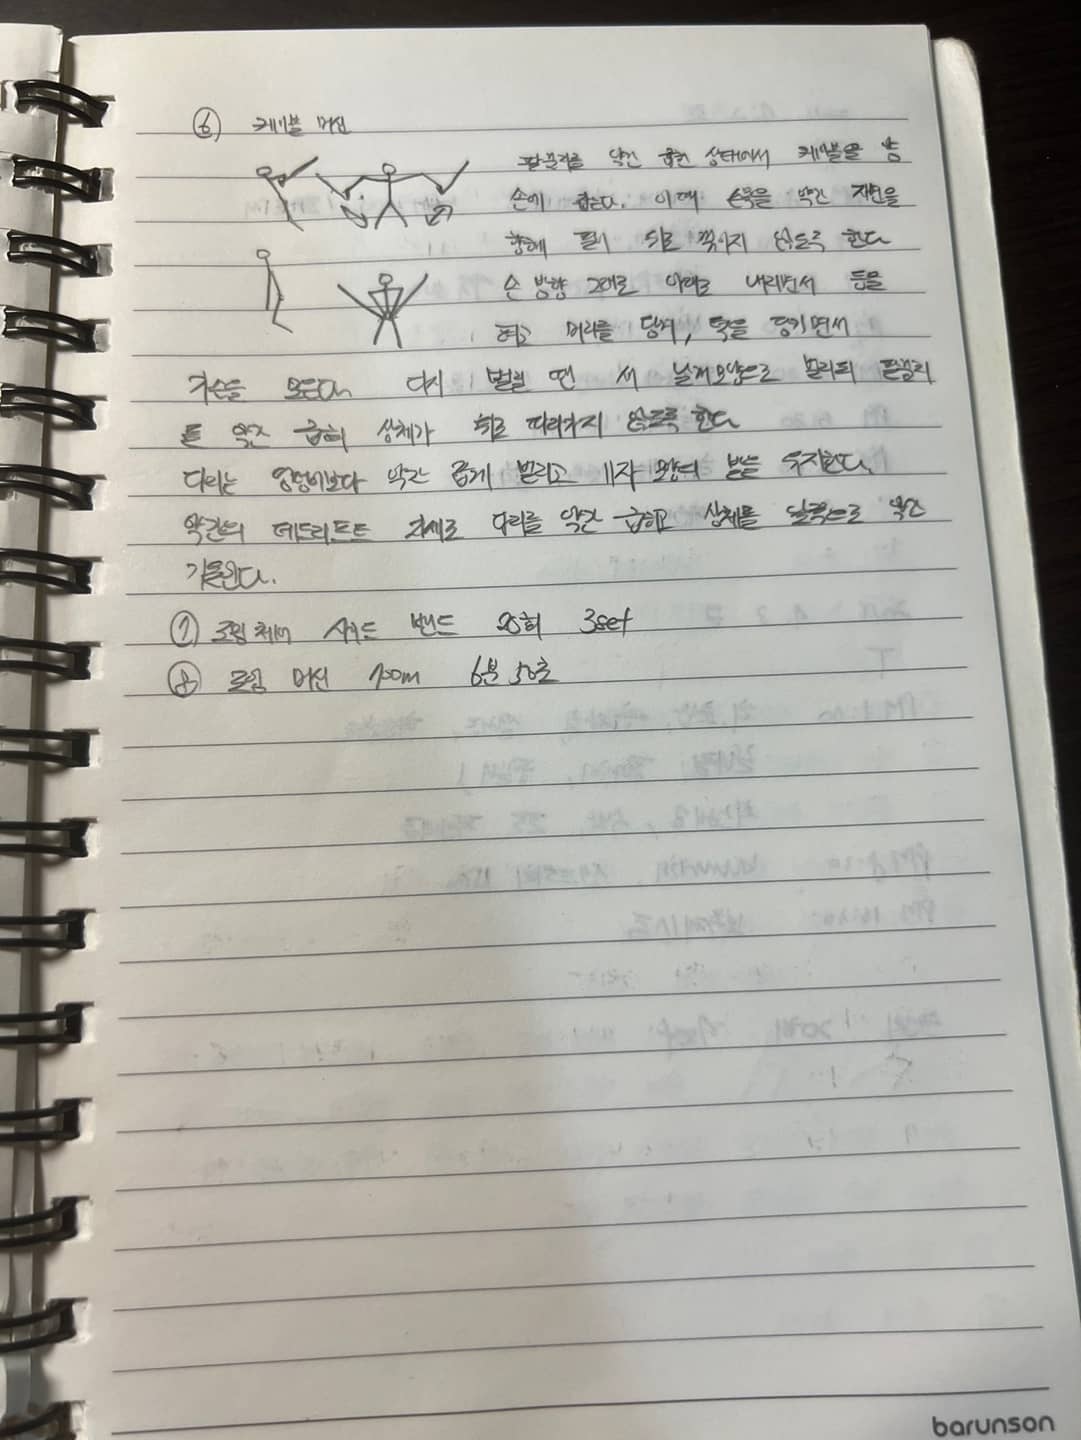 ⑥ 케이블 머신
팔꿈치를 약간 굽힌 상태에서 케이블을 양
손에 잡는다. 이때 손목을 약간 지면을
향해 펴서 뒤로 꺾이지 않도록 한다
손 방향 그대로 아래로 내리면서 등을
펴고 머리를 당겨, 턱을 당기면서
가슴을 모은다. 다시 벌릴 땐 날개모양으로 벌리되 팔꿈치
를 약간 굽혀 상체가 뒤로 따라가지 않도록 한다
다리는 엉덩이보다 약간 좁게 벌리고 11자 모양의 발을 유지한다.
약간의 데드리프트 자세로 다리를 약간 굽히고 상체를 앞쪽으로 약간
기울인다.
⑦ 로잉체어 사이드 밴드 20회 3set
⑧ 로잉 머신 700m 6분 50초
barunson